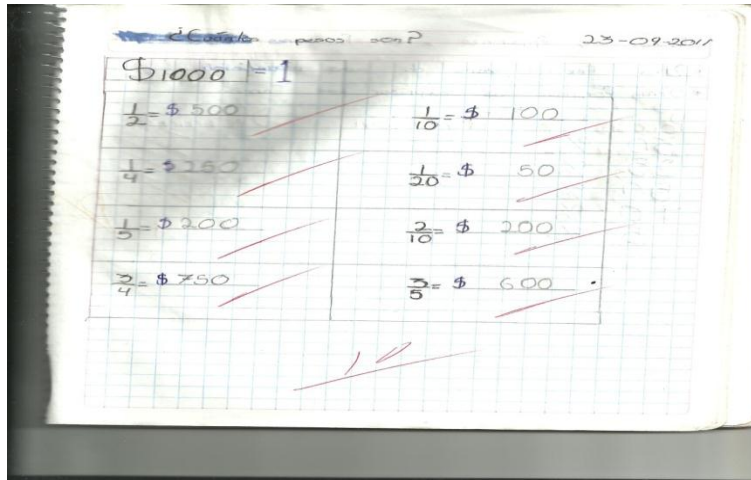 ¿Cuántos pesos son? 23-09-2011
$1000 = 1
1/2 = $ 500
1/4 = $ 250
1/5 = $ 200
3/4 = $ 750
1/10 = $ 100
1/20 = $ 50
2/10 = $ 200
3/5 = $ 600
10